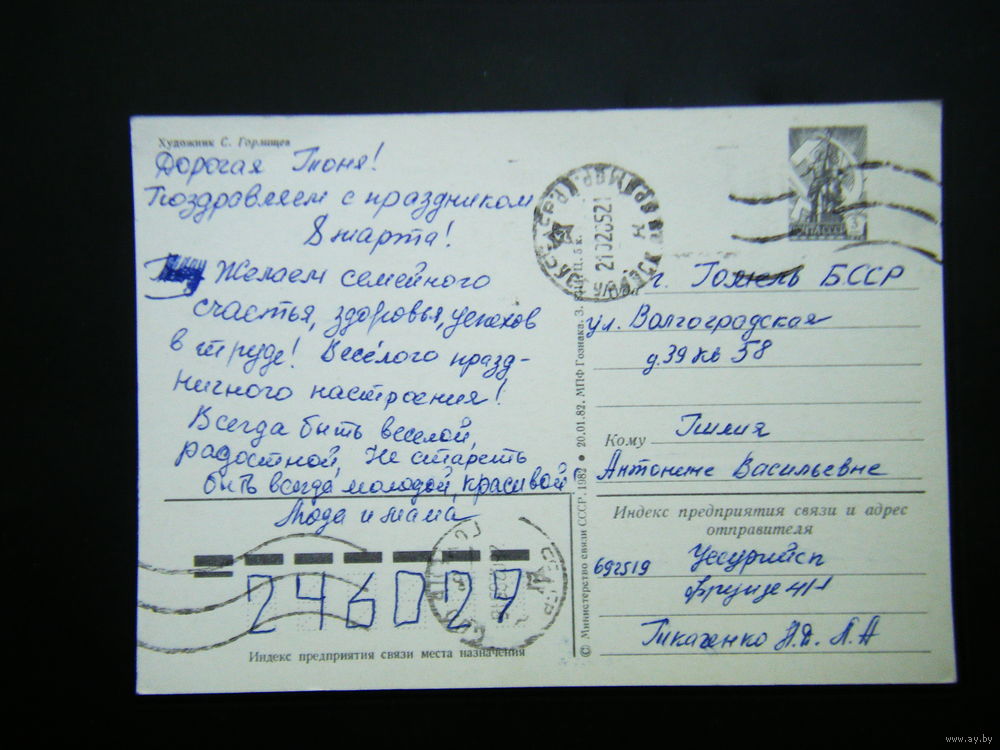 Художник С. Горлищев
Дорогая Тоня!
Поздравляем с праздником
8 марта!
Желаем семейного
счастья, здоровья, успехов
в труде! Весёлого празд-
ничного настроения!
Всегда быть веселой,
радостной, Не стареть
быть всегда молодой, красивой
Люда и мама
246029
Индекс предприятия связи места назначения
© Министерство связи СССР. 1982 • 20.01.82. МПФ Гознака. З. Ц. 5 к.
ПОЧТА СССР
г. Гомель БССР
ул. Волгоградская
д. 39 кв 58
Кому
Антонине Васильевне
Индекс предприятия связи и адрес
отправителя
692519 Уссурийск
Фрунзе
Н.Д. Л. А
www.ay.by